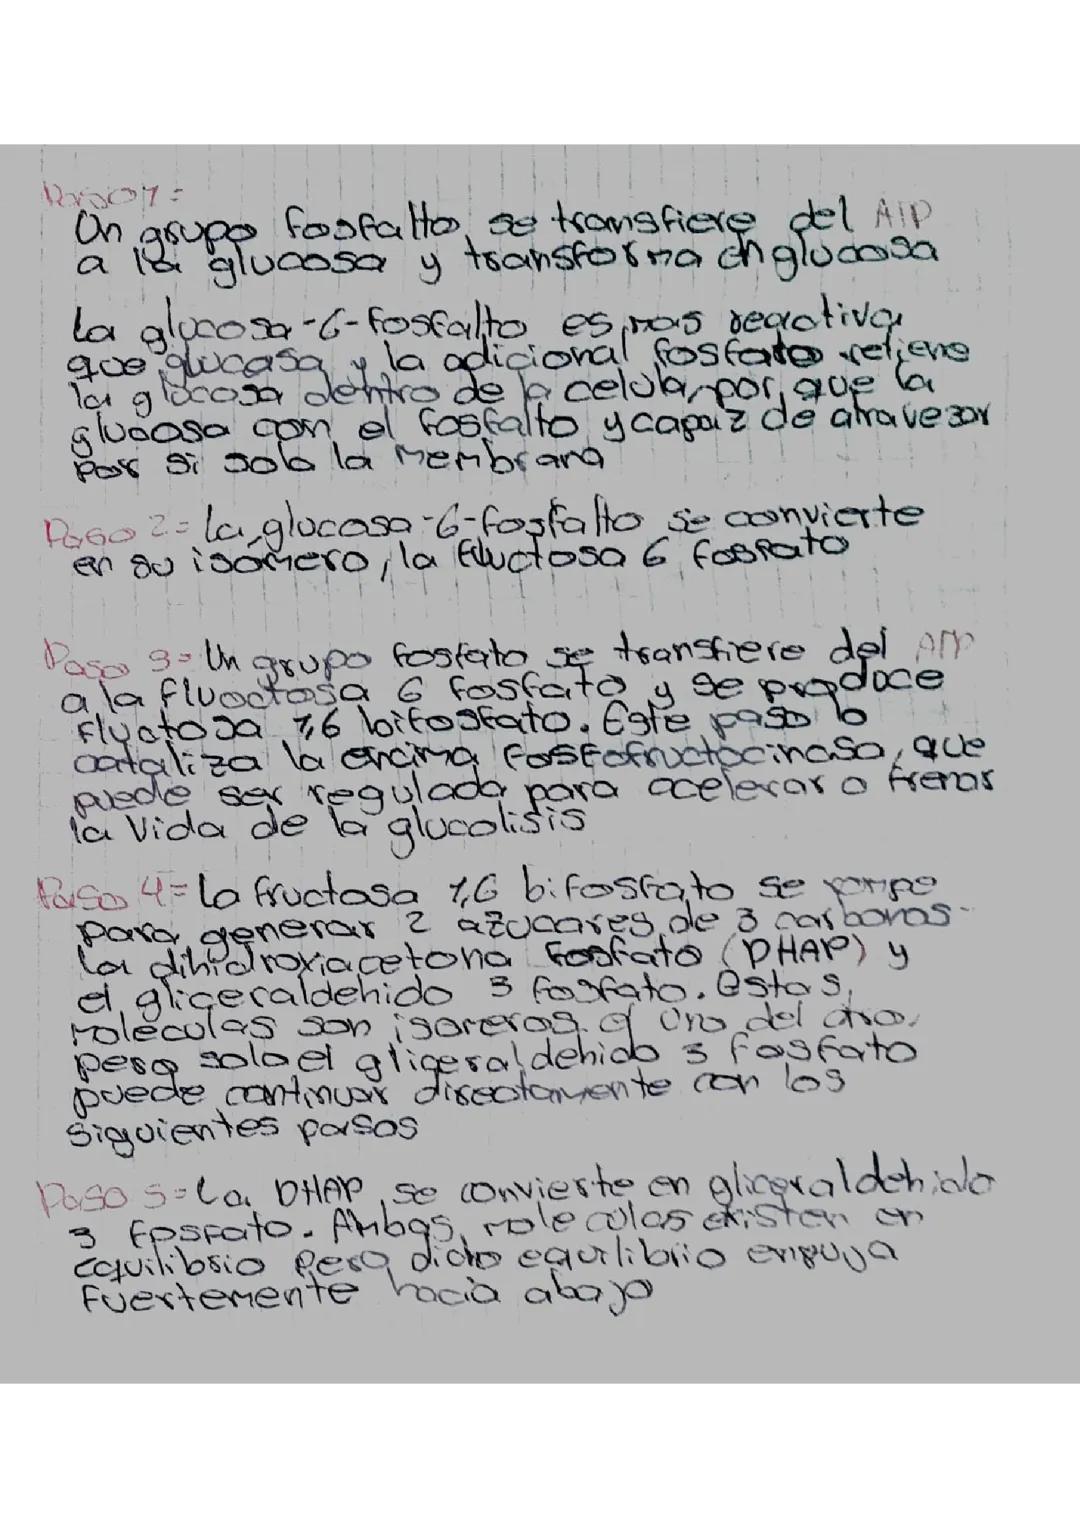 Paso 1=
Un grupo fosfalto se transfiere del ATP
a la glucosa y transforma en glucosa
La glucosa-6-fosfalto es mas reactiva
que glucasa y la adicional fosfato retiene
la glucosa dentro de la celula, por que la
glucosa com el fosfalto y capaz de atravezar
por si sola la membrana
Paso 2= La glucosa-6-fosfalto se convierte
en su isomero, la fluctosa 6 fosfato
Paso 3= Un grupo fosfato se transfiere del ATP
a la fluoctosa 6 fosfato y se produce
fluctosa 1,6 bifosfato. Este paso lo
cataliza la encima fosfofructocinasa, que
puede ser regulada para acelerar o frenar
la vida de la glucolisis
Paso 4= La fructosa 1,6 bifosfato se rompe
para generar 2 azucares de 3 carbonos-
La dihidroxiacetona fosfato (DHAP) y
el gliceraldehido 3 fosfato. Estas
moleculas son isomeros el uno del otro,
pero solo el gliceraldehido 3 fosfato
puede continuar directamente con los
siguientes pasos
Paso 5= La DHAP se convierte en gliceraldehido
3 fosfato. Ambas moleculas existen en
equilibrio pero dicho equilibrio empuja
fuertemente hacia abajo